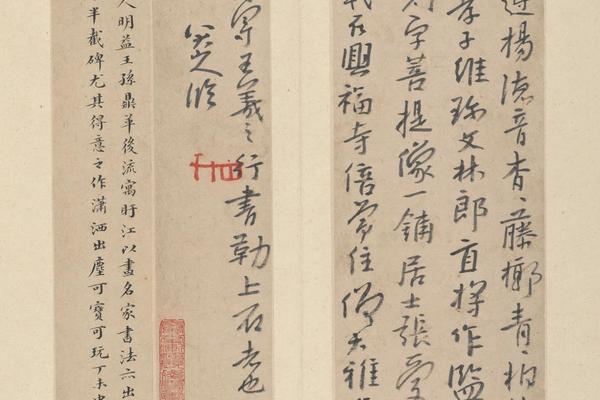 楊德音杳〻藤鄉青〻
孝子維孫文林郎直將作監
字菩提像一鋪居士張愛
石興福寺陪常住僧大雅
字王羲之行書勒上石者也
八大山人臨
人明益王孫鼎革後流寓盱江以畫名家書法六出
半截碑尤其得意之作瀟洒出塵可寶可玩丁未